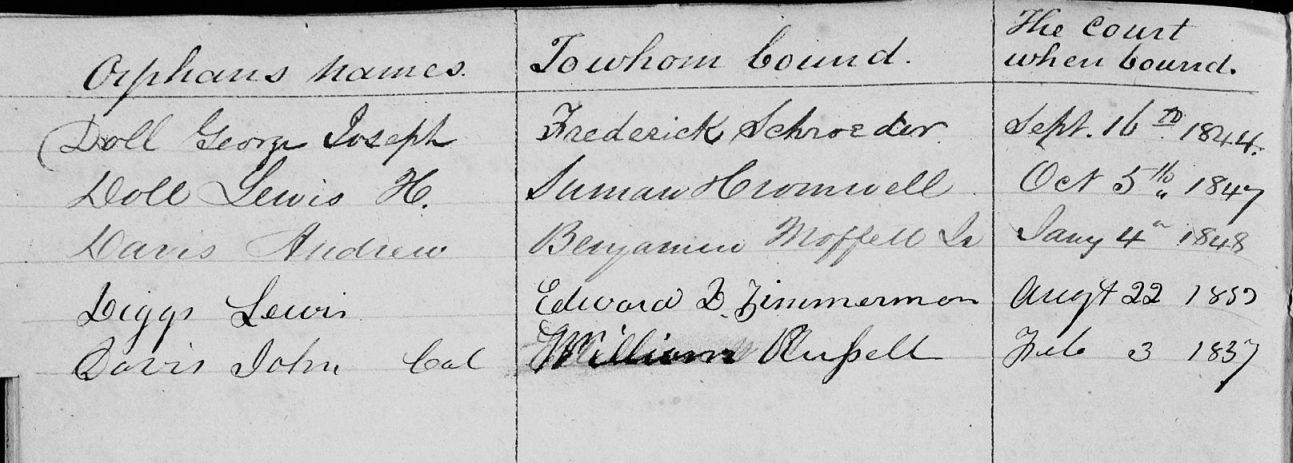 Orphans names. To whom bound. The court
when bound.
Doll George Joseph Frederick Schroeder Sept. 16th 1844.
Doll Lewis H. Cromwell Oct 5th 1847
Davis Andrew Benjamin Moffett Jr Jany 4th 1848
Diggs Lewis Edward D. Zimmerman Augt 22
Davis John Col William Russell Feb 3 1857